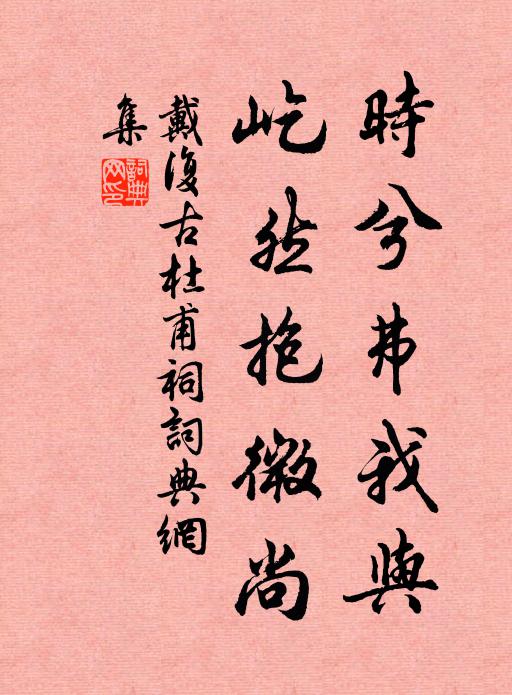 時兮弗我與
屹然抱微尚
戴復古杜甫祠詞典網
集
詞典網印